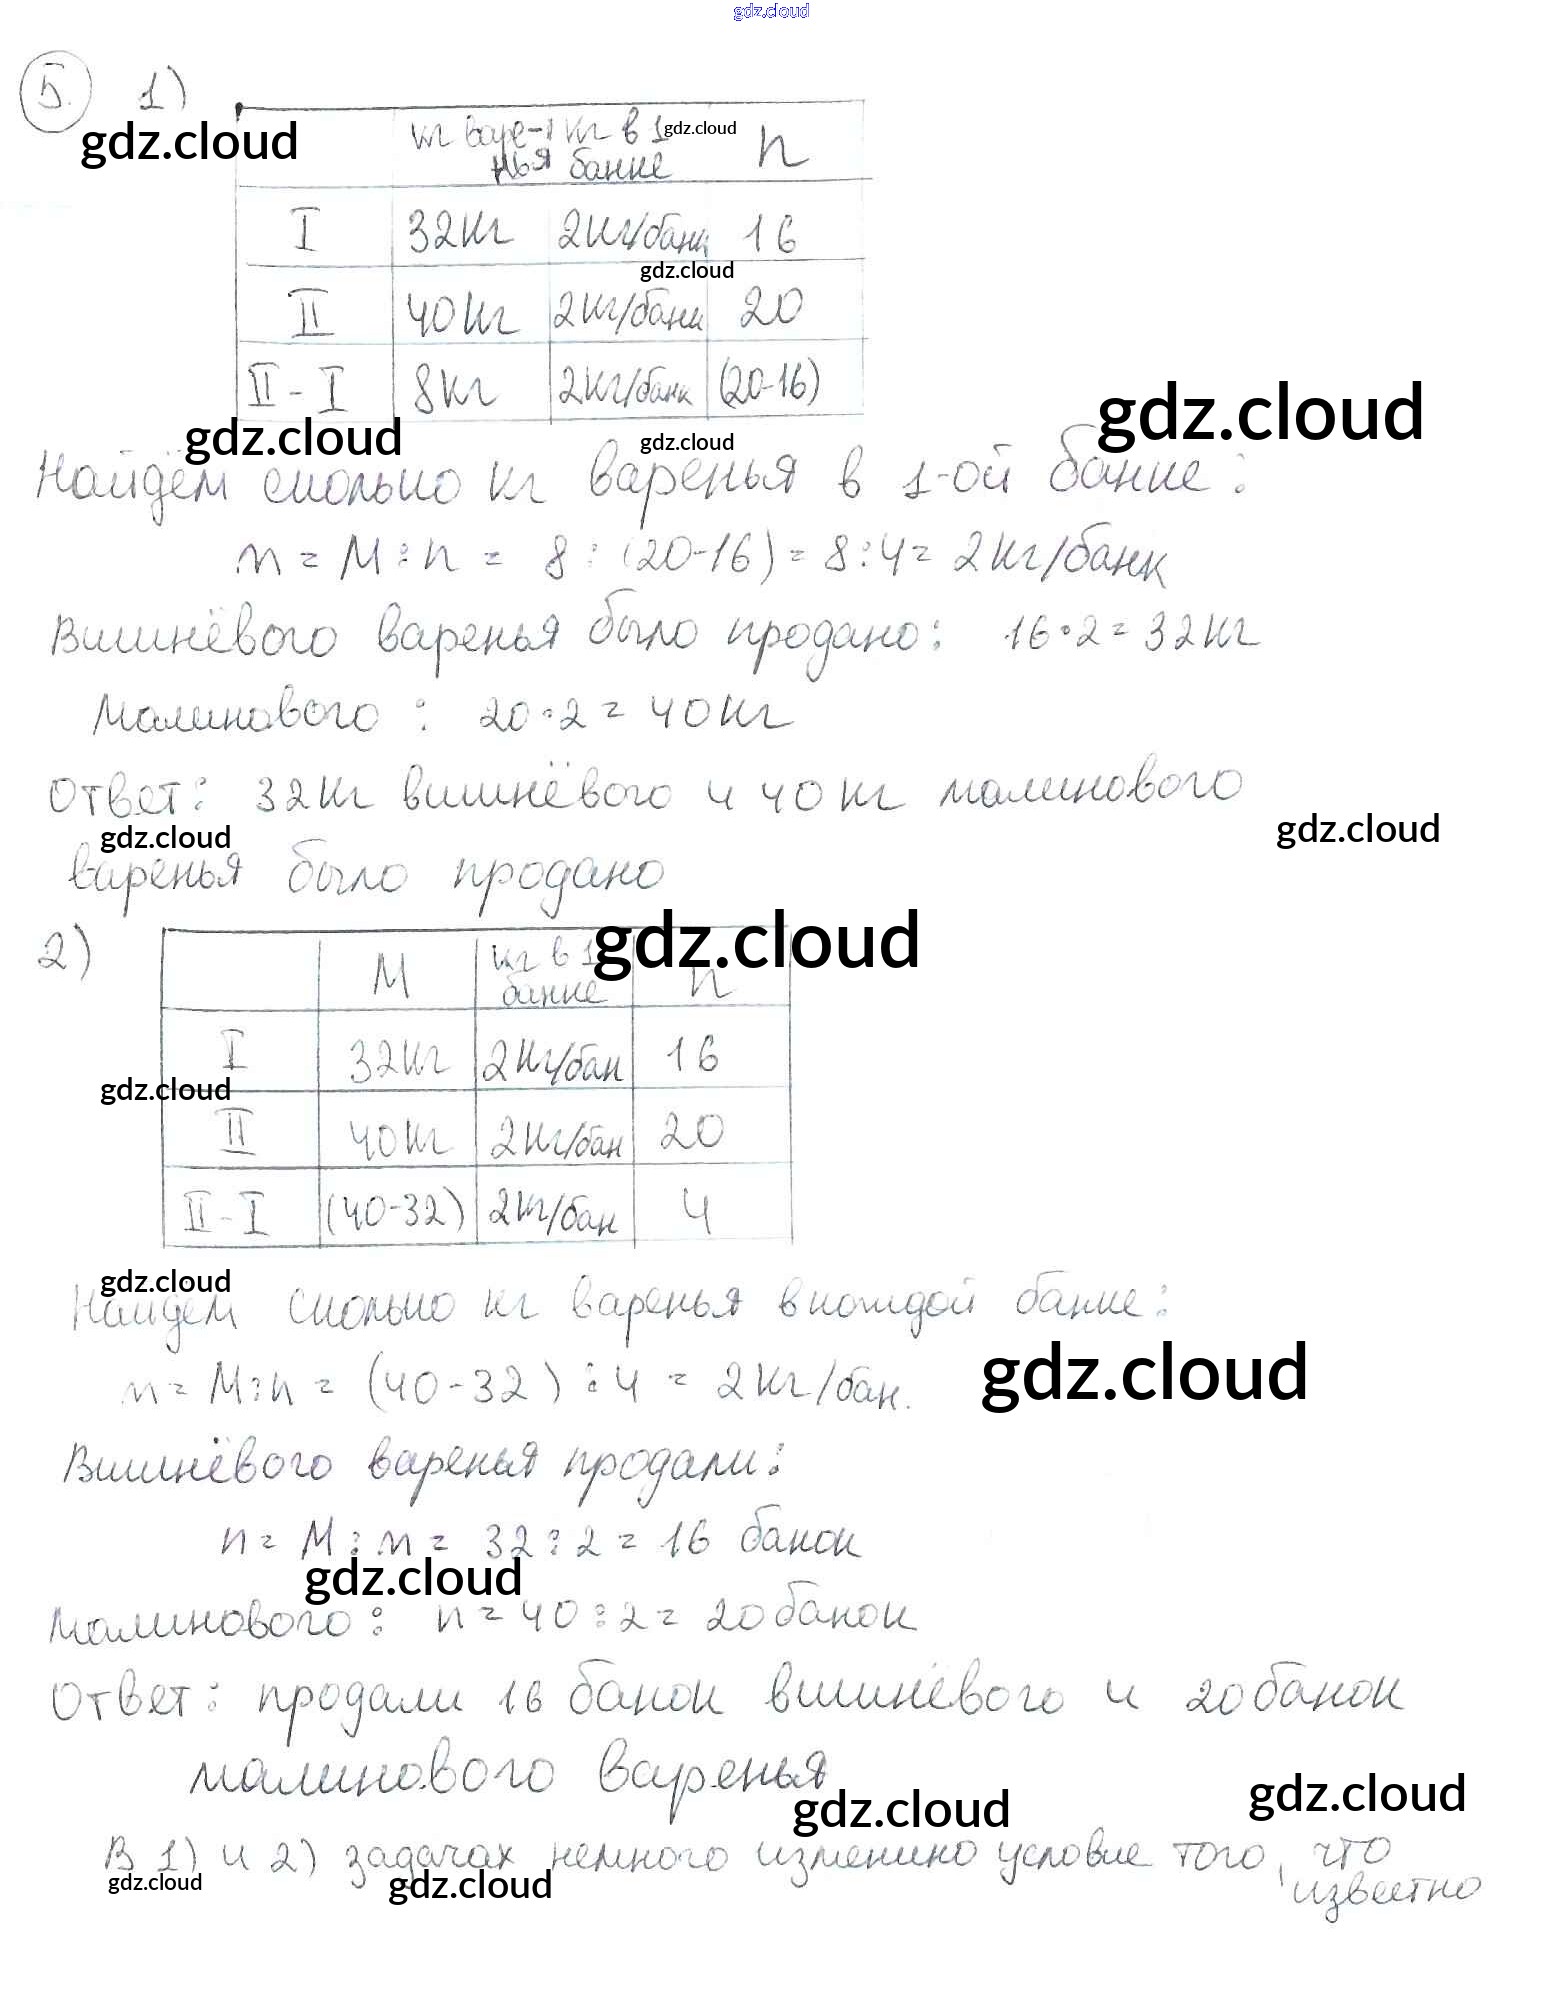 gdz.cloud
5. 1)
gdz.cloud
кг варе- кг в 1 gdz.cloud n
нья банке
I 32кг 2кг/банк 16
gdz.cloud
II 40кг 2кг/банк 20
II - I 8кг 2кг/банк (20-16)
gdz.cloud gdz.cloud gdz.cloud
Найдём сколько кг варенья в 1-ой банке:
m = M : n = 8 : (20-16) = 8:4 = 2кг/банк
Вишнёвого варенья было продано: 16·2=32кг
Малинового : 20·2 = 40кг
Ответ: 32кг вишнёвого и 40 кг малинового
gdz.cloud gdz.cloud
варенья было продано
2)
M кг в 1 gdz.cloud n
банке
I 32кг 2кг/бан 16
gdz.cloud
II 40кг 2кг/бан 20
II - I (40-32) 2кг/бан 4
gdz.cloud
Найдём сколько кг варенья в каждой банке:
m = M:n = (40-32) : 4 = 2кг/бан.
gdz.cloud
Вишнёвого варенья продали:
n = M : m = 32 : 2 = 16 банок
gdz.cloud
Малинового: n = 40 : 2 = 20 банок
Ответ: продали 16 банок вишнёвого и 20 банок
малинового варенья
gdz.cloud gdz.cloud
В 1) и 2) задачах немного изменино условие того, что
известно
gdz.cloud gdz.cloud